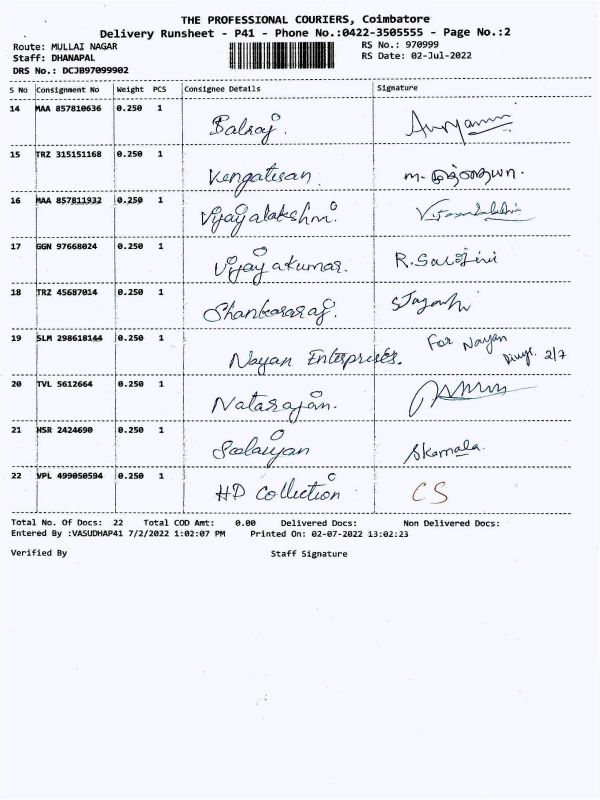 THE PROFESSIONAL COURIERS, Coimbatore
Delivery Runsheet - P41 - Phone No.:0422-3505555 - Page No.:2
Route: MULLAI NAGAR RS No.: 970999
Staff: DHANAPAL RS Date: 02-Jul-2022
DRS No.: DCJB97099902
S No Consignment No Weight PCS Consignee Details Signature
14 MAA 857810636 0.250 1 Balraj.
15 TRZ 315151168 0.250 1 Vengatesan.
16 MAA 857811932 0.250 1 Vijayalakshmi.
17 GGN 97668024 0.250 1 Vijayakumar. R. Sarojini
18 TRZ 45687014 0.250 1 Shankararaj.
19 SLM 298618144 0.250 1 Nayan Enterprises. For Nayan 2/7
20 TVL 5612664 0.250 1 Natarajan.
21 HSR 2424690 0.250 1 Skamala.
22 VPL 499050594 0.250 1 HD Collection CS
Total No. Of Docs: 22 Total COD Amt: 0.00 Delivered Docs: Non Delivered Docs:
Entered By :VASUDHAP41 7/2/2022 1:02:07 PM Printed On: 02-07-2022 13:02:23
Verified By Staff Signature